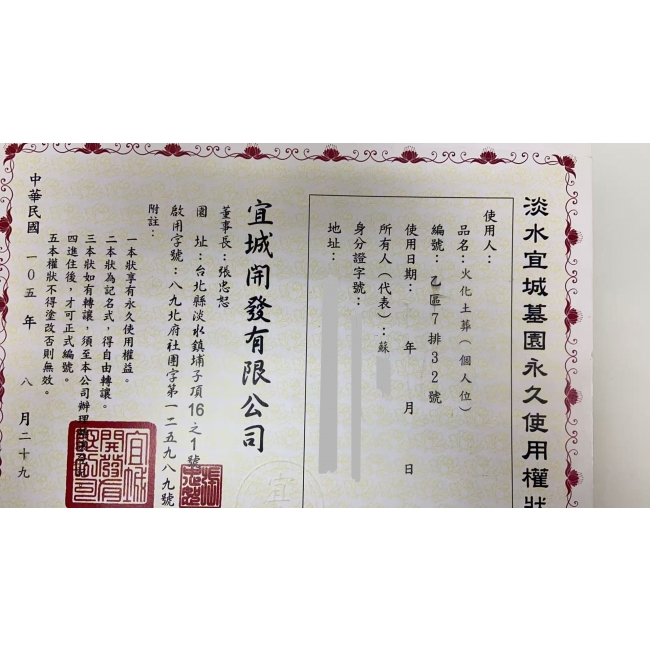 淡水宜城墓園永久使用權狀
使用人：
品名：火化土葬（個人位）
編號：乙區7排32號
使用日期： 年 月 日
所有人（代表）：蘇
身分證字號：
地址：
宜城開發有限公司
董事長：張忠恕
園 址：台北縣淡水鎮埔子頂16之1號
啟用字號：八九北府社團字第一二五九八九號
附註：
一本狀享有永久使用權益。
二本狀為記名式，得自由轉讓。
三本狀如有轉讓，須至本公司辦理
四進住後，才可正式編號。
五本權狀不得塗改否則無效。
中華民國 一０五 年 八 月 二十九
宜城開發有限公司
宜